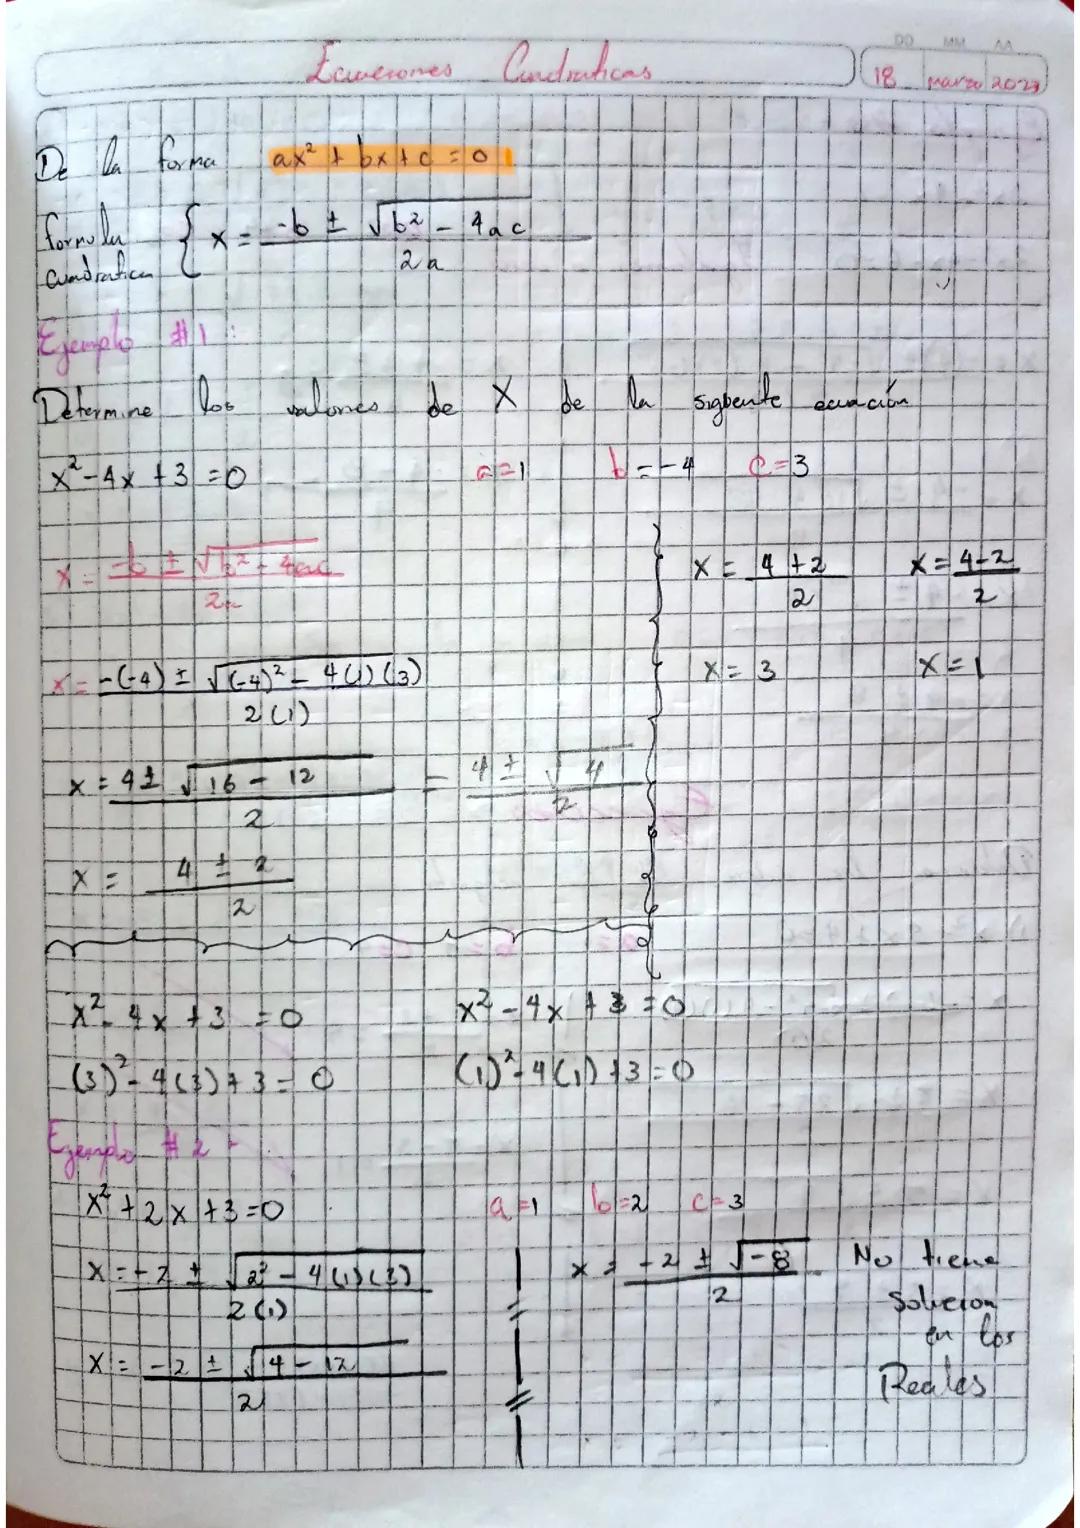 Ecuaciones Cuadraticas
DD MM AA
18 marzo 2023
De la forma ax² + bx + c = 0
formula cuadratica { x = -b ± √b² - 4ac / 2a
Ejemplo #1:
Determine los valores de X de la siguiente ecuación
x² - 4x + 3 = 0 a=1 b=-4 c=3
x = -b ± √b² - 4ac / 2a
x = -(-4) ± √(-4)² - 4(1)(3) / 2(1)
x = 4 ± √16 - 12 / 2 = 4 ± √4 / 2
x = 4 ± 2 / 2
x = 4 + 2 / 2 x = 4 - 2 / 2
x = 3 x = 1
x² - 4x + 3 = 0 x² - 4x + 3 = 0
(3)² - 4(3) + 3 = 0 (1)² - 4(1) + 3 = 0
Ejemplo #2
x² + 2x + 3 = 0 a=1 b=2 c=3
x = -2 ± √2² - 4(1)(3) / 2(1)
x = -2 ± √4 - 12 / 2
x = -2 ± √-8 / 2
No tiene
Solucion
en los
Reales